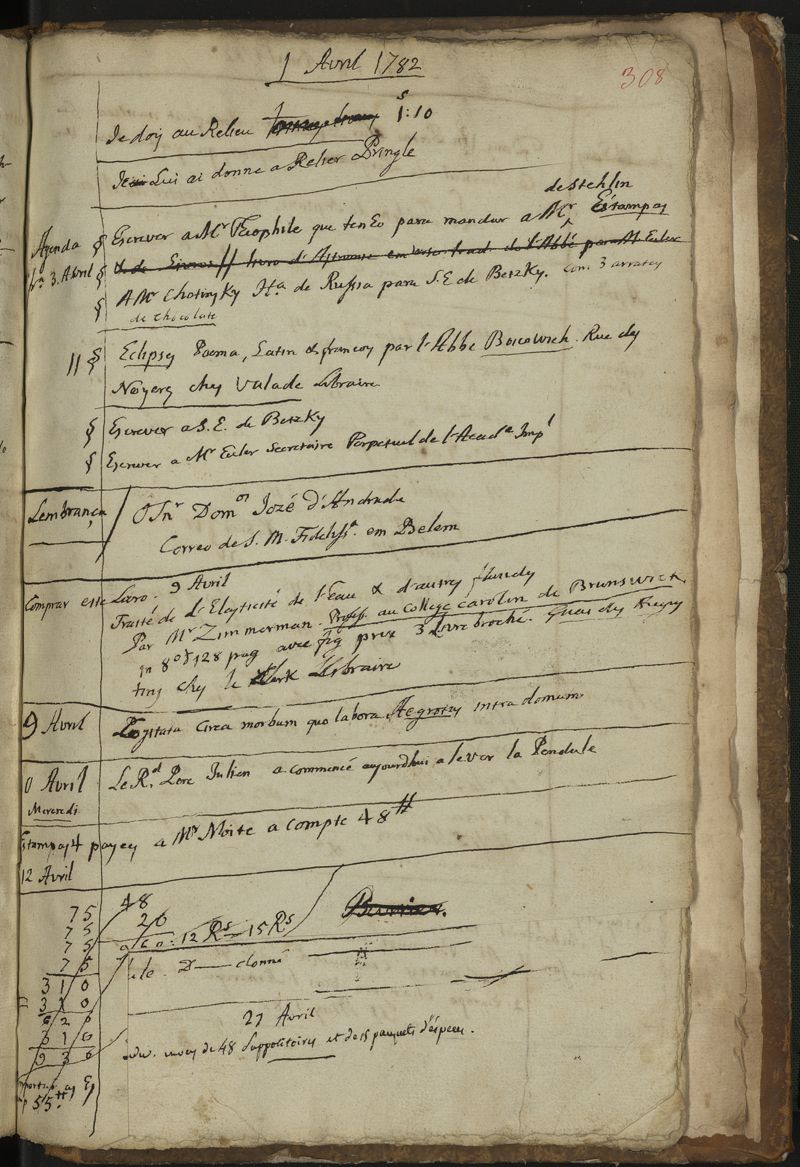 1 Avril 1782
308
Je doy au Relieu 1:10
Je Lui ai donne a Relier Pringle
de Stehlin
Agenda § Escrever a Mr Theophile que tenho para mandar a Mr Estampas
3. Avril § & de livro d'Astronomie en verso trad. de l'Abbé para Mr Euler
§ A Mr Chotinsky de Russia para S.E de Betzky. con 3 arrateis
de Chocolate
11 § Eclipses Poema, Latin & francoy par l'Abbe Boscowich. Rue des
Noyers chez Valade Libraire
§ Escrever a S. E. de Betzky
§ Escrever a Mr Euler Secretaire Perpetuel de l'Acade Impl
Lembrança / O Snr Domos Jozé d'Andrade
Correo de S. M. Fidelissa. em Belem
Comprar este Livro. 9 Avril
Traité de L'Elasticité de l'Eau & d'autres fluides
Par Mr Zimmerman. Profess. au College Carolin de Brunswick
in 8o 128 pag avec fig prix 3 Livre broché. Quai des Augus
tins chez le Libraire
9 Avril Cogitata circa morbum quo labora Aegrotus intra domum
0 Avril Le Rd. Pere Julien a commencé aujourdhui a lever la Pendule
Mercredi
Estampas 4 payey a Mr Moite a compte 48 ₶
12 Avril
48
75 20
75 960: 12 Rs 15 Rs
75
75 D donné
310
310
620
310
930
27 Avril
envoy de 48 Suppositoires et de 18 paquets d'especes.
55 ₶